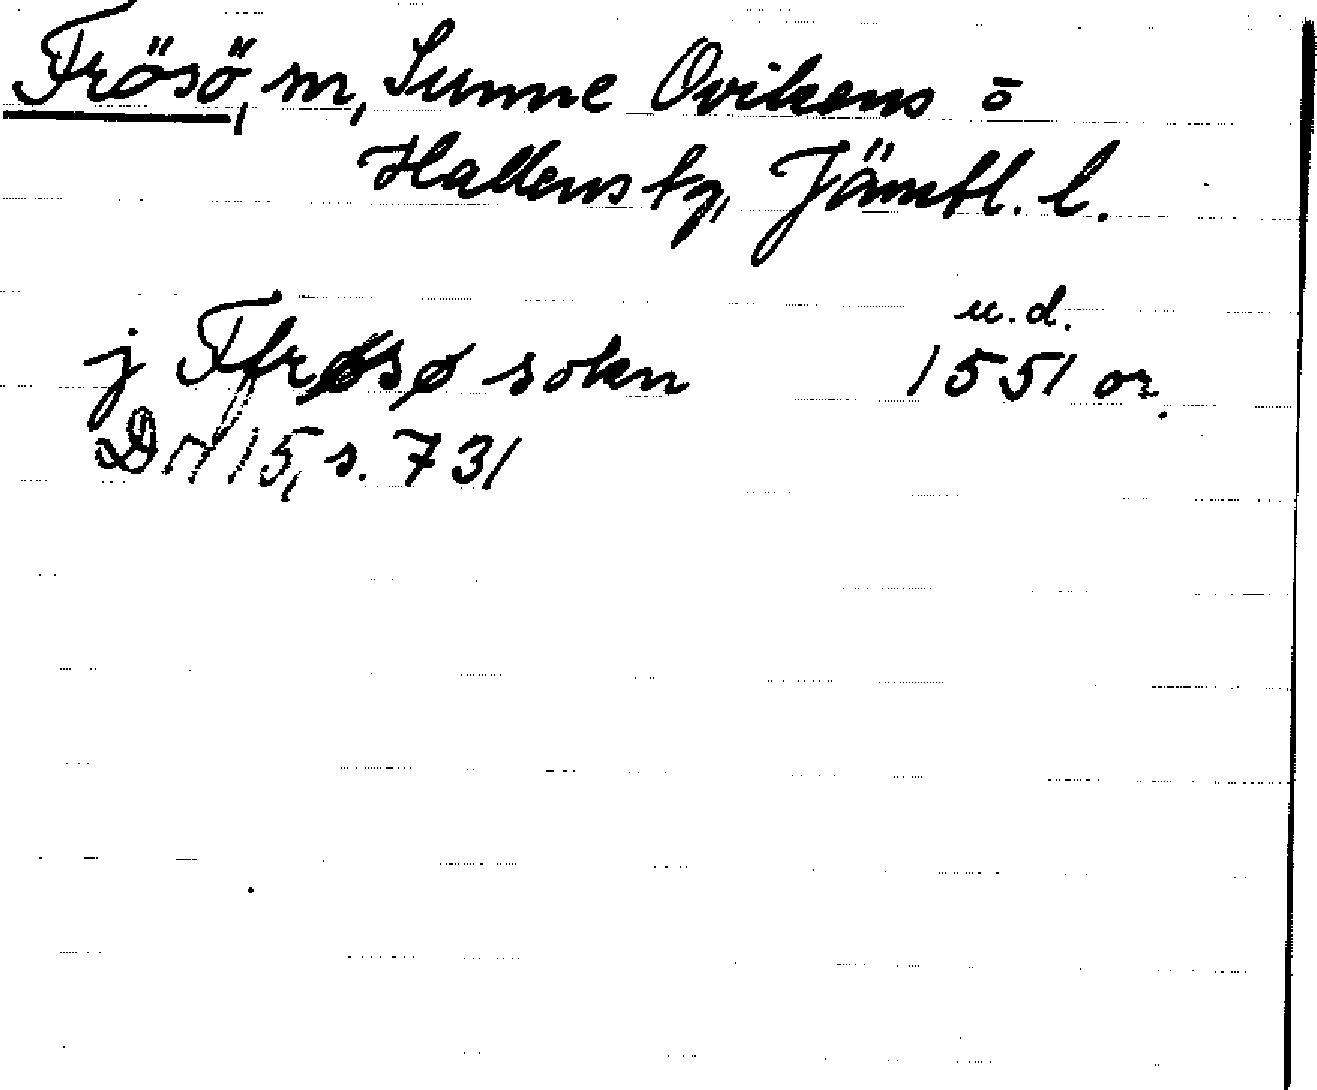 Frösö, sn, Sunne Ovikens o
Hallens tg, Jämtl. l.
u.d.
j Ffrøsø sokn 1551 or.
DN 15, s. 731